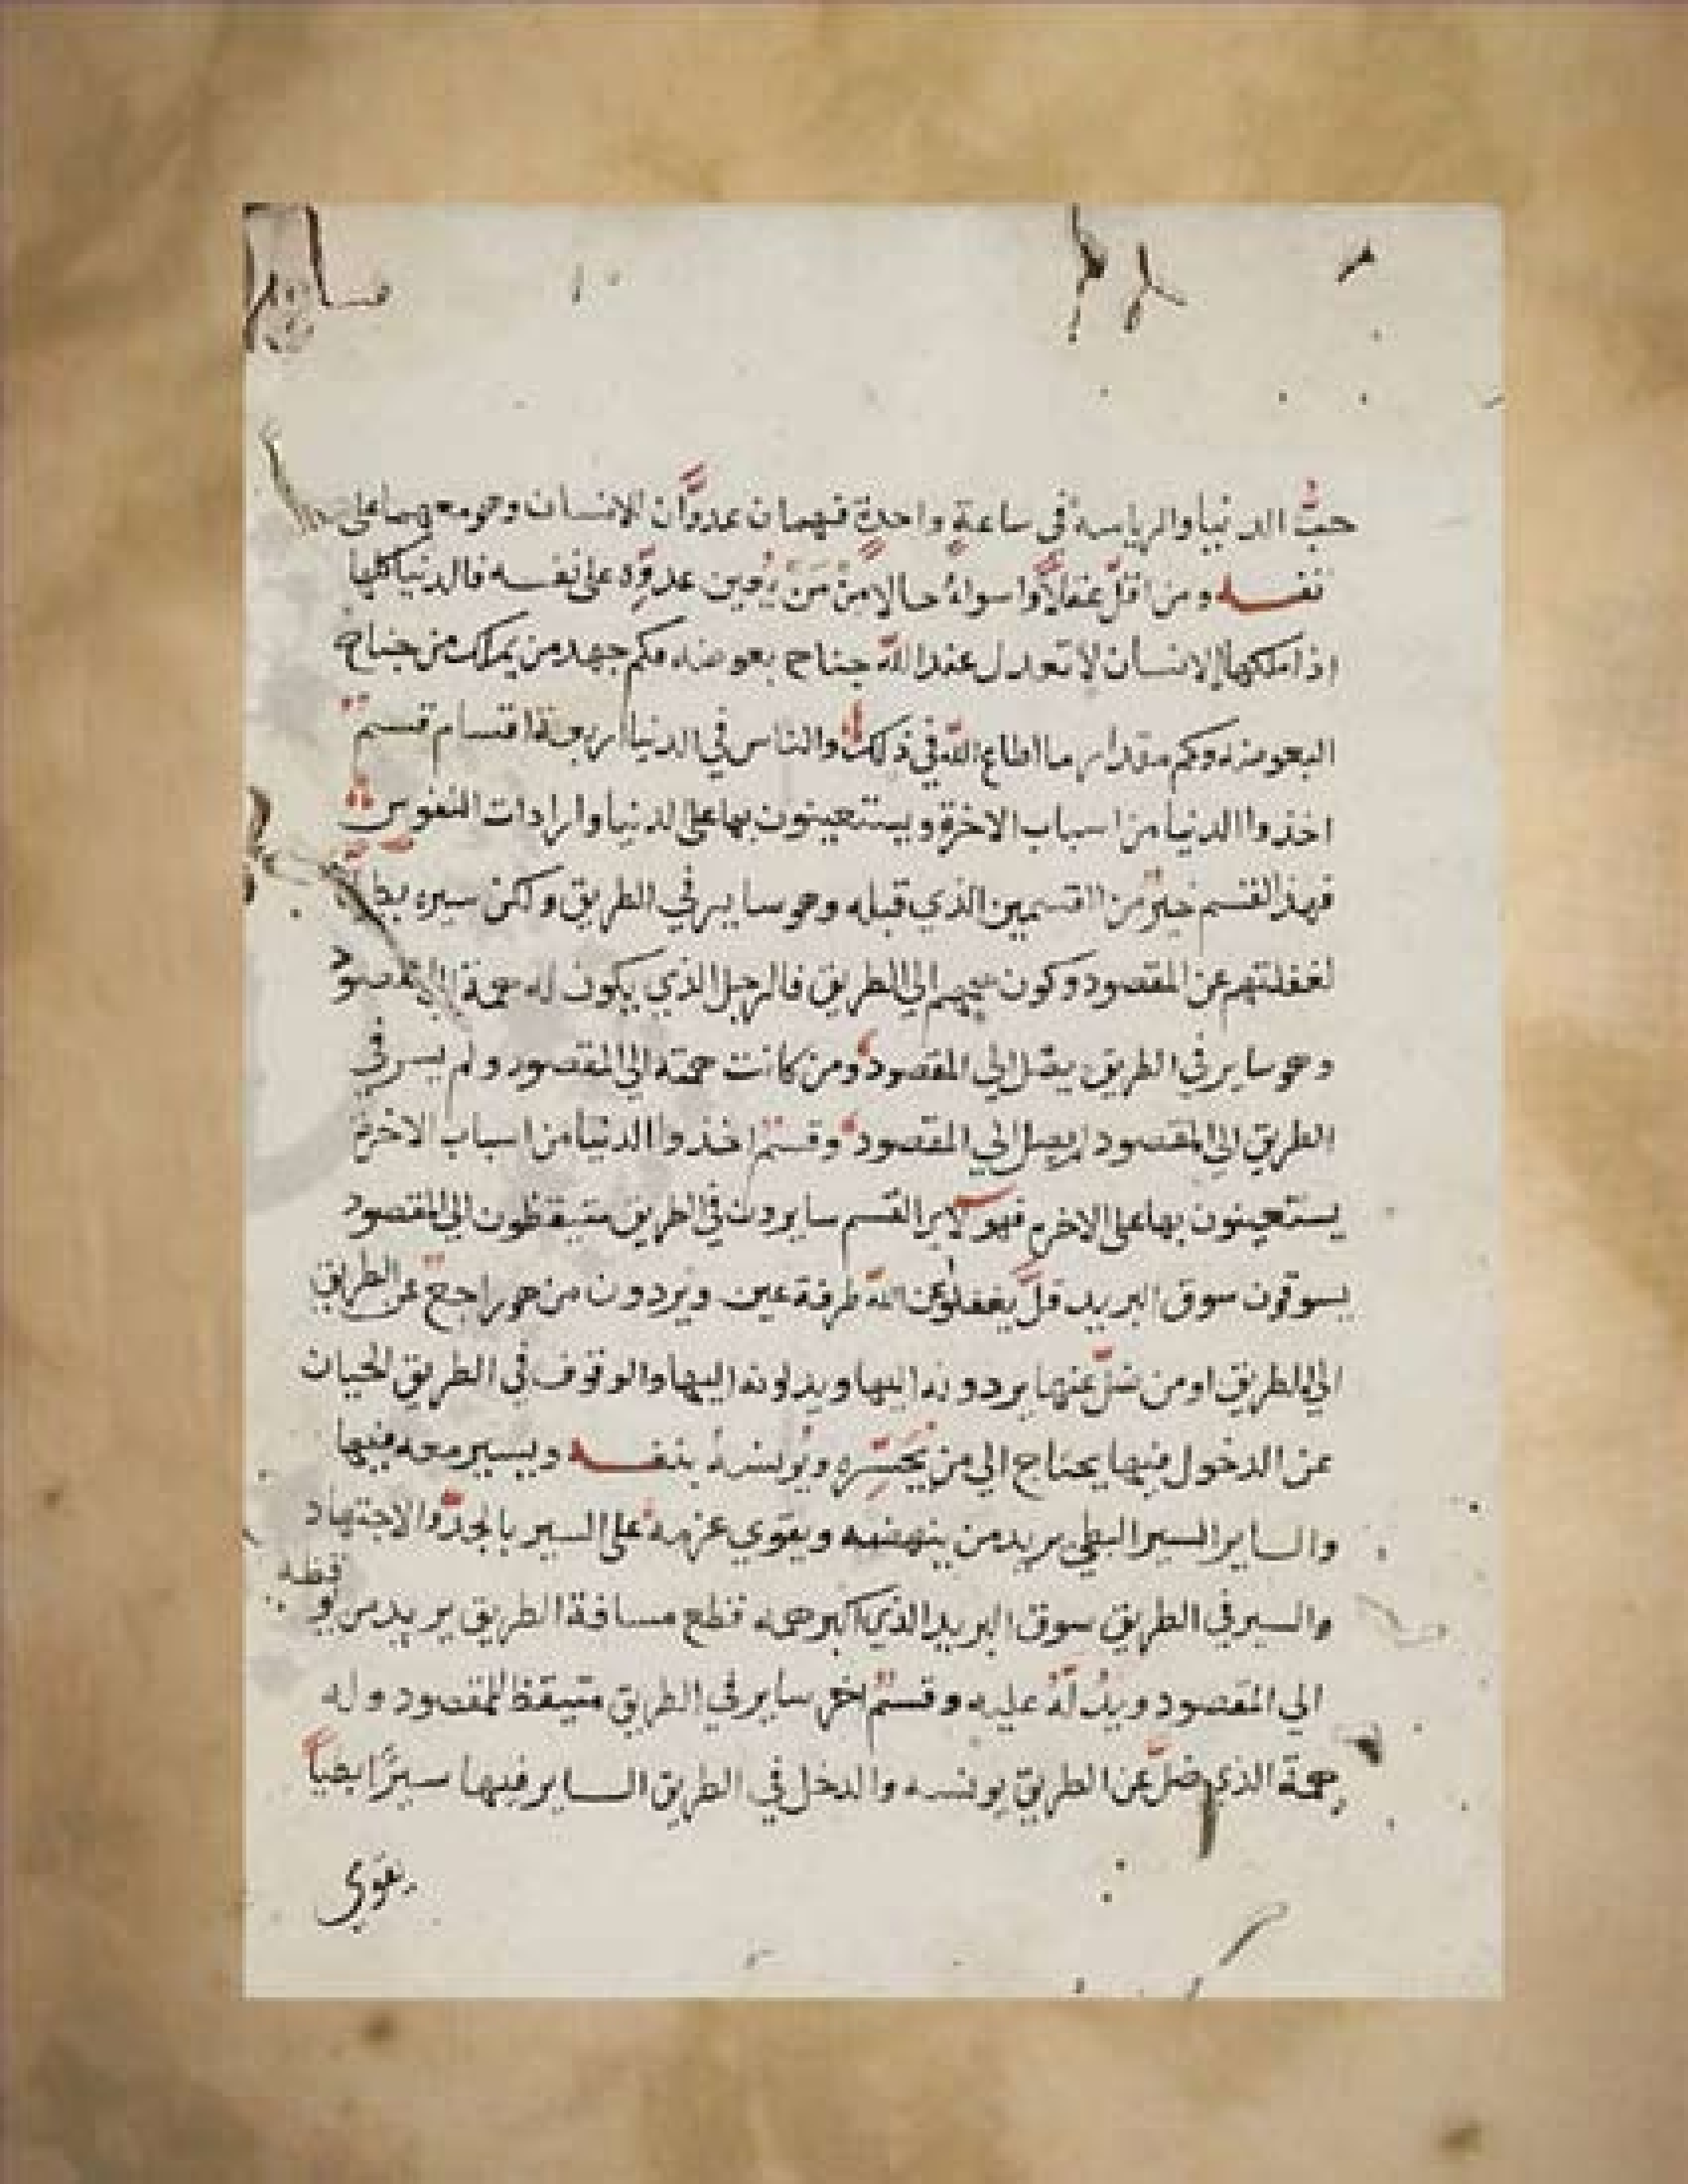 حبُّ الدنيا والرياسة في ساعةٍ واحدةٍ فهما ن عدوَّان الانسان وهو معهما على
نفسه ومن اقلُّ عقلاً واسواءُ حالا مِنْ مَنْ يُعين عدوَّه على نفسه فالدنيا كلها
اذا ملكها الانسان لا تعدل عند الله جناح بعوضه فكم جهد من يملك من جناح
البعوضه وكم مقدار ما اطاع الله في ذلك والناس في الدنيا اربعة اقسام قسم
اخذوا الدنيا من اسباب الاخرة ويستعينون بها على الدنيا وارادات النفوس
فهذ القسم خيرٌ من القسمين الذي قبله وهو ساير في الطريق ولكن سيره بطي
لغفلتهم عن المقصود وكون همهم الى الطريق فالرجل الذي يكون له همة الى المقصود
وهو ساير في الطريق يصل الى المقصود ومن كانت همته الى المقصود ولم يسر في
الطريق الى المقصود لم يصل الى المقصود وقسمٌ اخذوا الدنيا من اسباب الاخرة
يستعينون بها على الاخره فهولاء القسم سايرون في الطريق متيقظون الى المقصود
يسوقون سوق البريد قلَّ يغفلو عن الله طرفة عين ويردون من هو راجع عن الطريق
الى الطريق او من ضلَّ عنها يردونه اليها ويدلونه اليها والوقوف في الطريق الحيان
عن الدخول فيها يحتاج الى من يُجَسِّره ويُونسهُ بنفسه ويسير معه فيها
والساير السير البطي يريد من ينهضه ويقوي عزمه على السير بالجدِّ والاجتهاد
والسير في الطريق سوق البريد الذي اكبر همه قطع مسافة الطريق يريد من يوقظه
الى المقصود ويدُلَّهُ عليه وقسمٌ اخر ساير في الطريق متيقظ للمقصود وله
همة الذي ضلَّ عن الطريق يونسه والدخل في الطريق الساير فيها سيرًا بطياً
يقوي